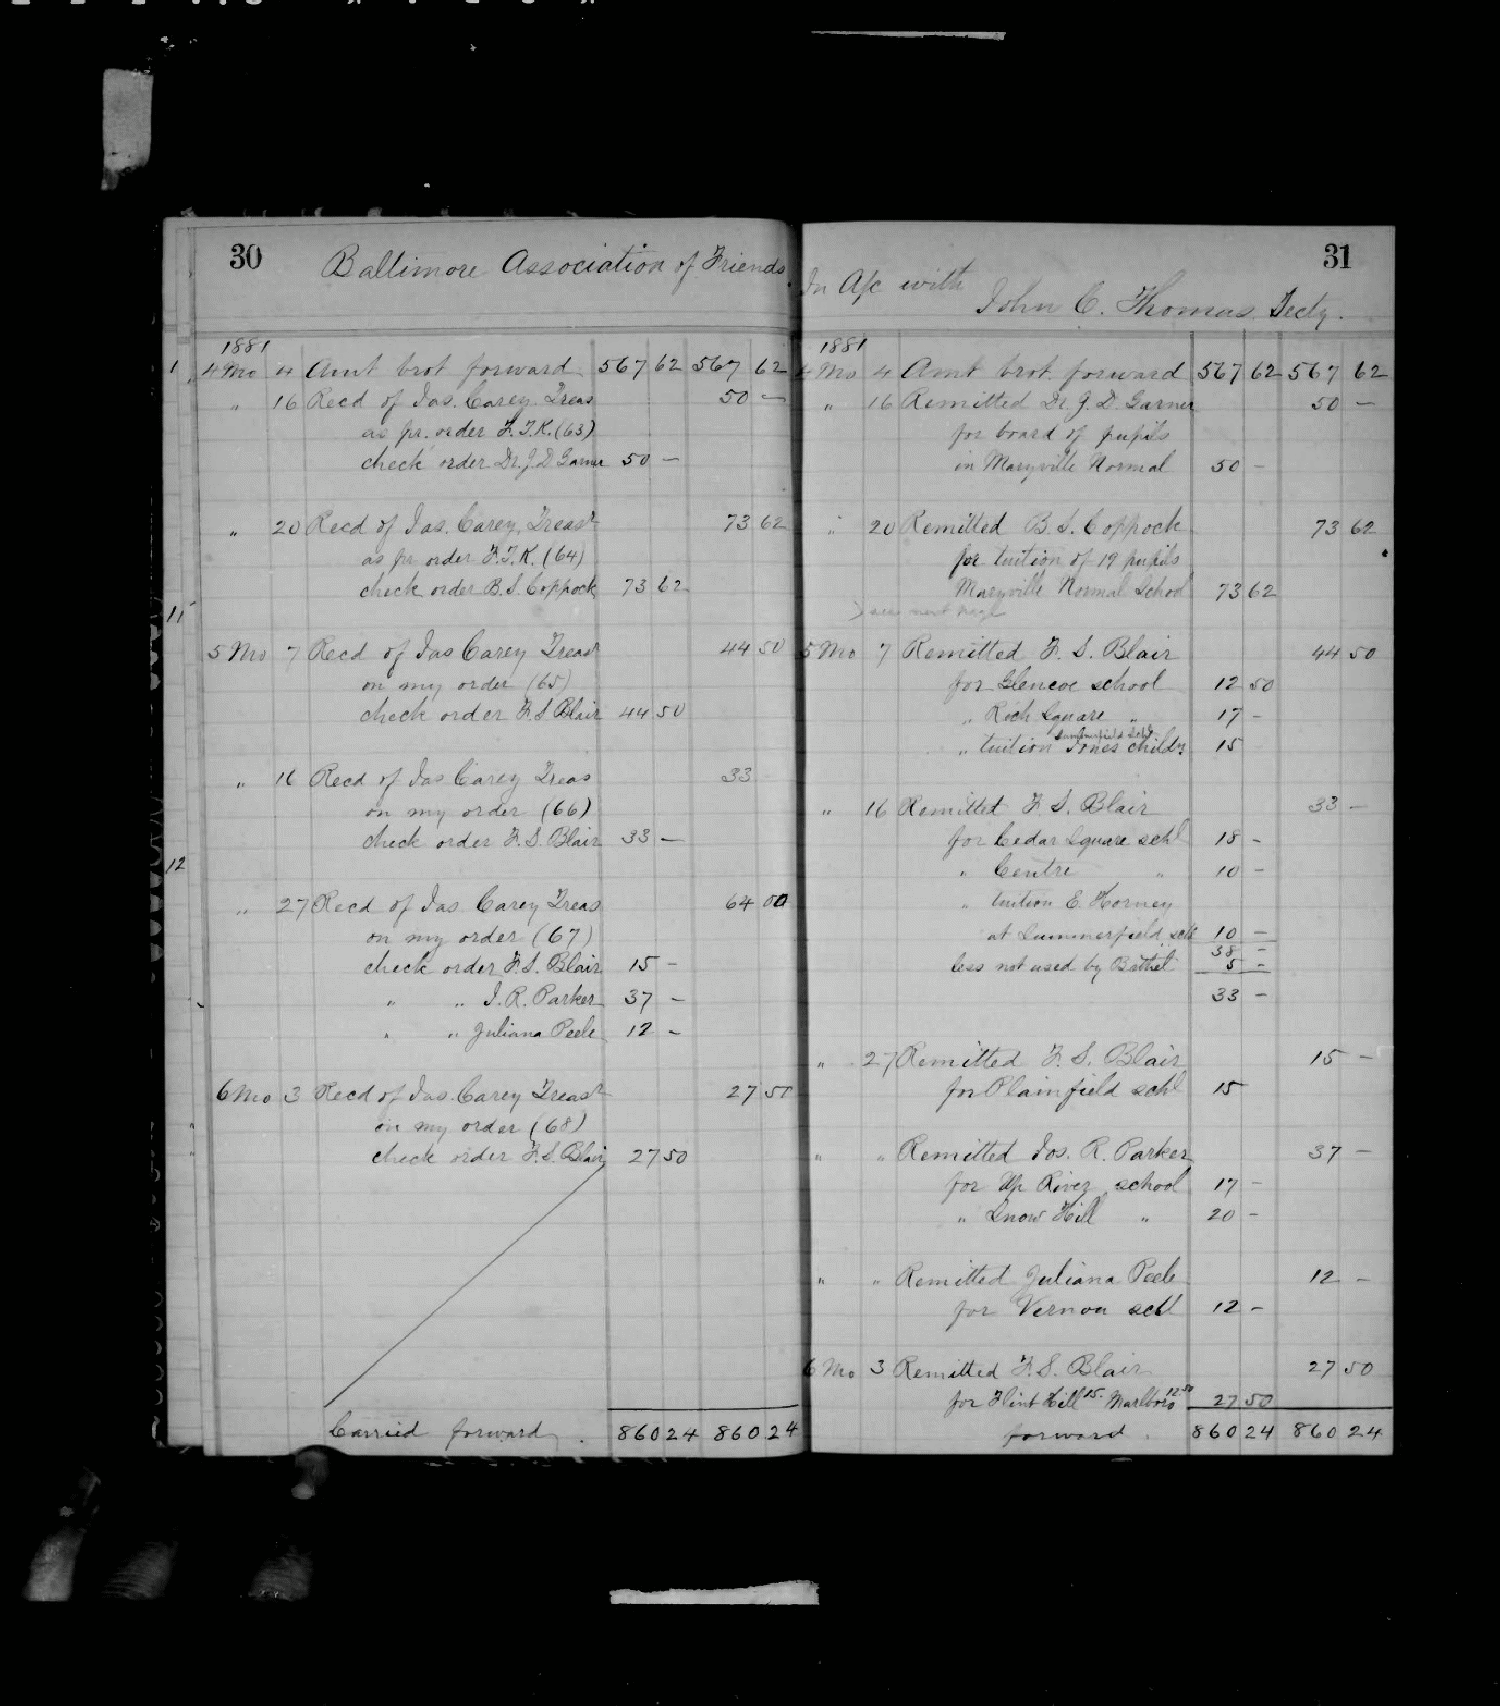 30
Baltimore Association of Friends
1881
4 Mo 4 Amt brot forward 567 62 567 62
" 16 Recd of Jas. Carey Treas 50 —
as pr. order F.T.K. (63)
check order Dr. J D Garner 50 —
" 20 Recd of Jas. Carey, Treasr 73 62
as pr order F.T.K. (64)
check order B.S. Coppock 73 62
5 Mo 7 Recd of Jas Carey Treasr 44 50
on my order (65)
check order F S Blair 44 50
" 16 Recd of Jas Carey Treas 33
on my order (66)
check order F. S. Blair 33 —
" 27 Recd of Jas Carey Treas 64 00
on my order (67)
check order F. S. Blair 15 —
" " J. R. Parker 37 —
" " Juliana Peele 12 —
6 Mo 3 Recd of Jas. Carey Treasr 27 50
on my order (68)
check order F. S. Blair 27 50
Carried forward 860 24 860 24
1
11
12
31
In A/c with
John C. Thomas Secty.
1881
4 Mo 4 Amt brot. forward 567 62 567 62
" 16 Remitted Dr. J. D. Garner 50 —
for board of pupils
in Maryville Normal 50 —
" 20 Remitted B. S. Coppock 73 62
for tuition of 19 pupils
Maryville Normal School 73 62
see next page
5 Mo 7 Remitted F. S. Blair 44 50
for Glencoe school 12 50
" Rich Square " 17 —
Summerfield Schl
" tuition Jones childn 15
" 16 Remitted F. S. Blair 33 —
for Cedar Square schl 18 —
" Centre " 10 —
" tuition E. Horney
at Summerfield schl 10 —
38 —
less not used by Bethel 5 —
33 —
" 27 Remitted F. S. Blair 15 —
for Plainfield schl 15
" " Remitted Jos. R. Parker 37 —
for Up River school 17 —
" Snow Hill " 20 —
" " Remitted Juliana Peele 12 —
for Vernon schl 12 —
6 Mo 3 Remitted F. S. Blair 27 50
for Flint Hill 15. Marlboro 12.50 27 50
forward. 860 24 860 24